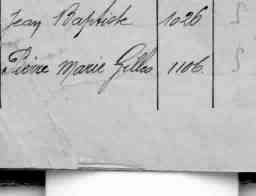 Jean Baptiste 1026
Pierre Marie Gilles 1106